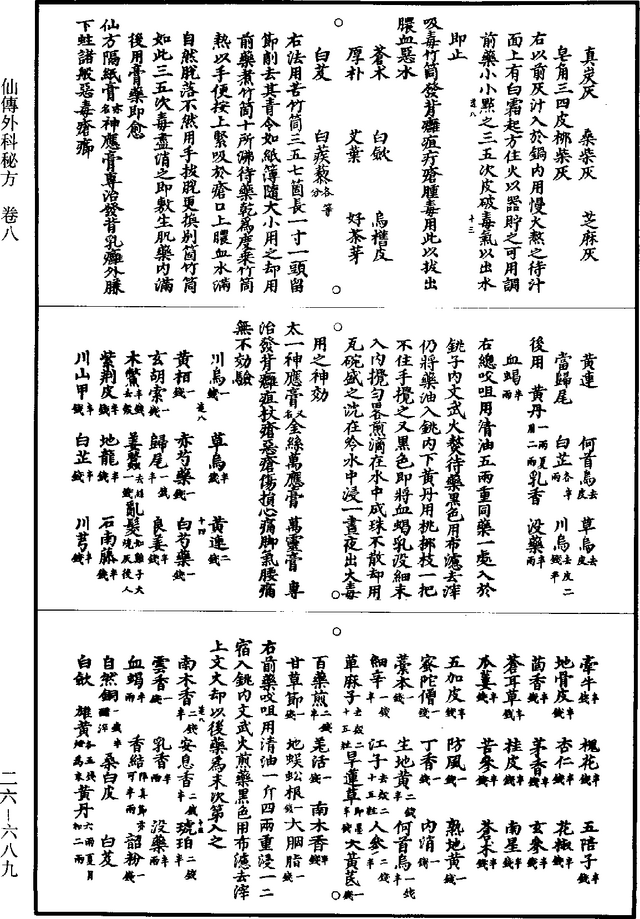 真炭灰 桑柴灰 芝麻灰
皂角三四皮 梛柴灰
右以前灰汁入於鍋內用慢火熬之待汁
面上有白霜起方住火以器貯之可用調
前藥小小點之三五次皮破毒氣以出水
即止
吸毒竹筒發背癰疽疔瘡腫毒用此以拔出
膿血惡水
蒼朮 白歛 烏桕皮
厚朴 艾葉 好茶芽
白芨 白蒺藜各等分
右法用苦竹筒三五七箇長一寸一頭留
節削去其青令如紙薄隨大小用之却用
前藥煮竹筒十沸待藥乾為度乘竹筒
熱以手便按上緊吸於瘡口上膿血水滿
自然脫落不然用手拔脫更換別箇竹筒
如此三五次毒盡消之即敷生肌藥內滿
後用膏藥即愈
仙方隔紙膏亦名神應膏專治發背乳癰外臁
下蛀諸般惡毒瘡癤
黃連 何首烏去皮 草烏去皮
當歸尾 白芷各半兩 川烏去皮二錢半
後用 黃丹一兩夏月二兩 乳香 沒藥半兩
血竭半兩
右總㕮咀用清油五兩重同藥一處入於
銚子內文武火熬待藥黑色用布濾去滓
仍將藥油入銚內下黃丹用桃梛枝一把
不住手攪之又黑色即將血竭乳沒細末
入內攪勻畧煎滴在水中成珠不散却用
瓦碗盛之沈在冷水中浸一晝夜出火毒
用之神効
太一神應膏又名金絲萬應膏 萬靈膏 專
治發背癰疽杖瘡惡瘡傷損心痛脚氣腰痛
無不効驗
川烏一錢 草烏半錢 黃連二錢
黃栢一錢 赤芍藥一錢 白芍藥一錢
玄胡索一錢 歸尾一錢 良姜半錢
木鱉去殼半錢 姜蠶去絲一錢 亂髮如雞子大燒灰後入
紫荊皮半錢 地龍半錢 石南藤半錢
川山甲半錢 白芷半錢 川芎半錢
牽牛半錢 槐花半錢 五陪子半錢
地骨皮半錢 杏仁半錢 花椒半錢
茴香半錢 茅香半錢 玄參半錢
蒼耳草半錢 桂皮半錢 南星半錢
瓜蔞半錢 苦參半錢 蒼朮半錢
五加皮半錢 防風半錢 熟地黃半錢
蜜陀僧一錢 丁香一錢 內消一錢
藁本一錢 生地黃二錢 何首烏一錢
細辛一錢 江子去殼二十五粒 人參二錢
萆麻子十五粒 旱蓮草即墨斗草 大黃芪一錢
百藥煎二錢 羗活一錢 南木香一錢
甘草節一錢 地蜈蚣根一錢 大腽脂一錢
右前藥㕮咀用清油一斤四兩重浸一二
宿入銚內文武火煎藥黑色用布濾去滓
上文火却以後藥為末次第入之
南木香二錢 安息香二錢 琥珀二錢
雲香一錢 乳香半兩 沒藥半兩
血竭半兩 香結 韶粉一錢
自然銅 桑白皮 白芨
白歛 雄黃 黃丹六兩夏月加二兩
仙傳外科秘方 卷八
二六—六八九